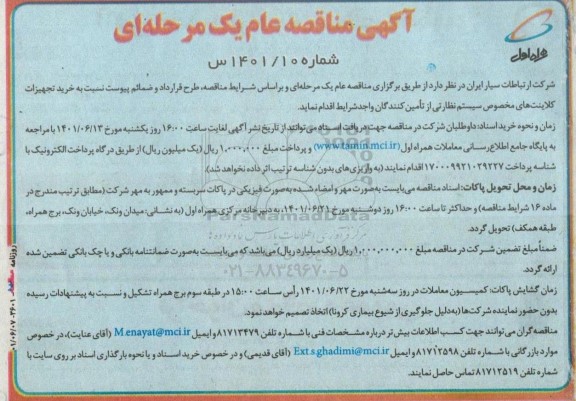 آگهی مناقصه عام یک مرحله‌ای
همراه اول
شماره ۱۴۰۱/۱۰س
شرکت ارتباطات سیار ایران در نظر دارد از طریق برگزاری مناقصه عام یک مرحله‌ای و براساس شرایط مناقصه، طرح قرارداد و ضمائم پیوست نسبت به خرید تجهیزات
کلاینت‌های مخصوص سیستم نظارتی از تأمین کنندگان واجد شرایط اقدام نماید.
زمان و نحوه خرید اسناد: داوطلبان شرکت در مناقصه جهت دریافت اسناد می‌توانند از تاریخ نشر آگهی لغایت ساعت ۱۶:۰۰ روز یکشنبه مورخ ۱۴۰۱/۰۶/۱۳ با مراجعه
به پایگاه جامع اطلاع‌رسانی معاملات همراه اول (www.tamin.mci.ir) و پرداخت مبلغ ۱,۰۰۰,۰۰۰ ریال (یک میلیون ریال) از طریق درگاه پرداخت الکترونیک با
شناسه پرداخت ۱۷۰۰۰۹۹۲۱۰۲۹۲۲۷ اقدام نمایند (به واریزی‌های بدون شناسه ترتیب اثر داده نخواهد شد).
زمان و محل تحویل پاکات: اسناد مناقصه می‌بایست به‌صورت مهر و امضاء شده به‌صورت فیزیکی در پاکات سربسته و ممهور به مهر شرکت (مطابق ترتیب مندرج در
ماده ۱۶ شرایط مناقصه) و حداکثر تا ساعت ۱۶:۰۰ روز دوشنبه مورخ ۱۴۰۱/۰۶/۲۱ به دبیرخانه مرکزی همراه اول (به نشانی: میدان ونک، خیابان ونک، برج همراه،
طبقه همکف) تحویل گردد.
ضمناً مبلغ تضمین شرکت در مناقصه مبلغ ۱,۰۰۰,۰۰۰,۰۰۰ ریال (یک میلیارد ریال) می‌باشد که می‌بایست به‌صورت ضمانتنامه بانکی و یا چک بانکی تضمین شده
ارائه گردد.
زمان گشایش پاکات: کمیسیون معاملات در روز سه‌شنبه مورخ ۱۴۰۱/۰۶/۲۲ رأس ساعت ۱۵:۰۰ در طبقه سوم برج همراه تشکیل و نسبت به پیشنهادات رسیده
بدون حضور نماینده شرکت‌ها (به‌دلیل جلوگیری از شیوع بیماری کرونا) اتخاذ تصمیم خواهد نمود.
مناقصه‌گران می‌توانند جهت کسب اطلاعات بیش‌تر درباره مشخصات فنی با شماره تلفن ۸۱۷۱۳۴۷۹ و ایمیل M.enayat@mci.ir (آقای عنایت)، در خصوص
موارد بازرگانی با شماره تلفن ۸۱۷۱۲۵۹۸ و ایمیل Ext.s.ghadimi@mci.ir (آقای قدیمی) و در خصوص خرید اسناد و یا نحوه بارگذاری اسناد بر روی سایت با
شماره تلفن ۸۱۷۱۲۵۱۹ تماس حاصل نمایند.
ParsNamadData
۰۲۱-۸۸۳۴۹۶۷۰-۵
روزنامه